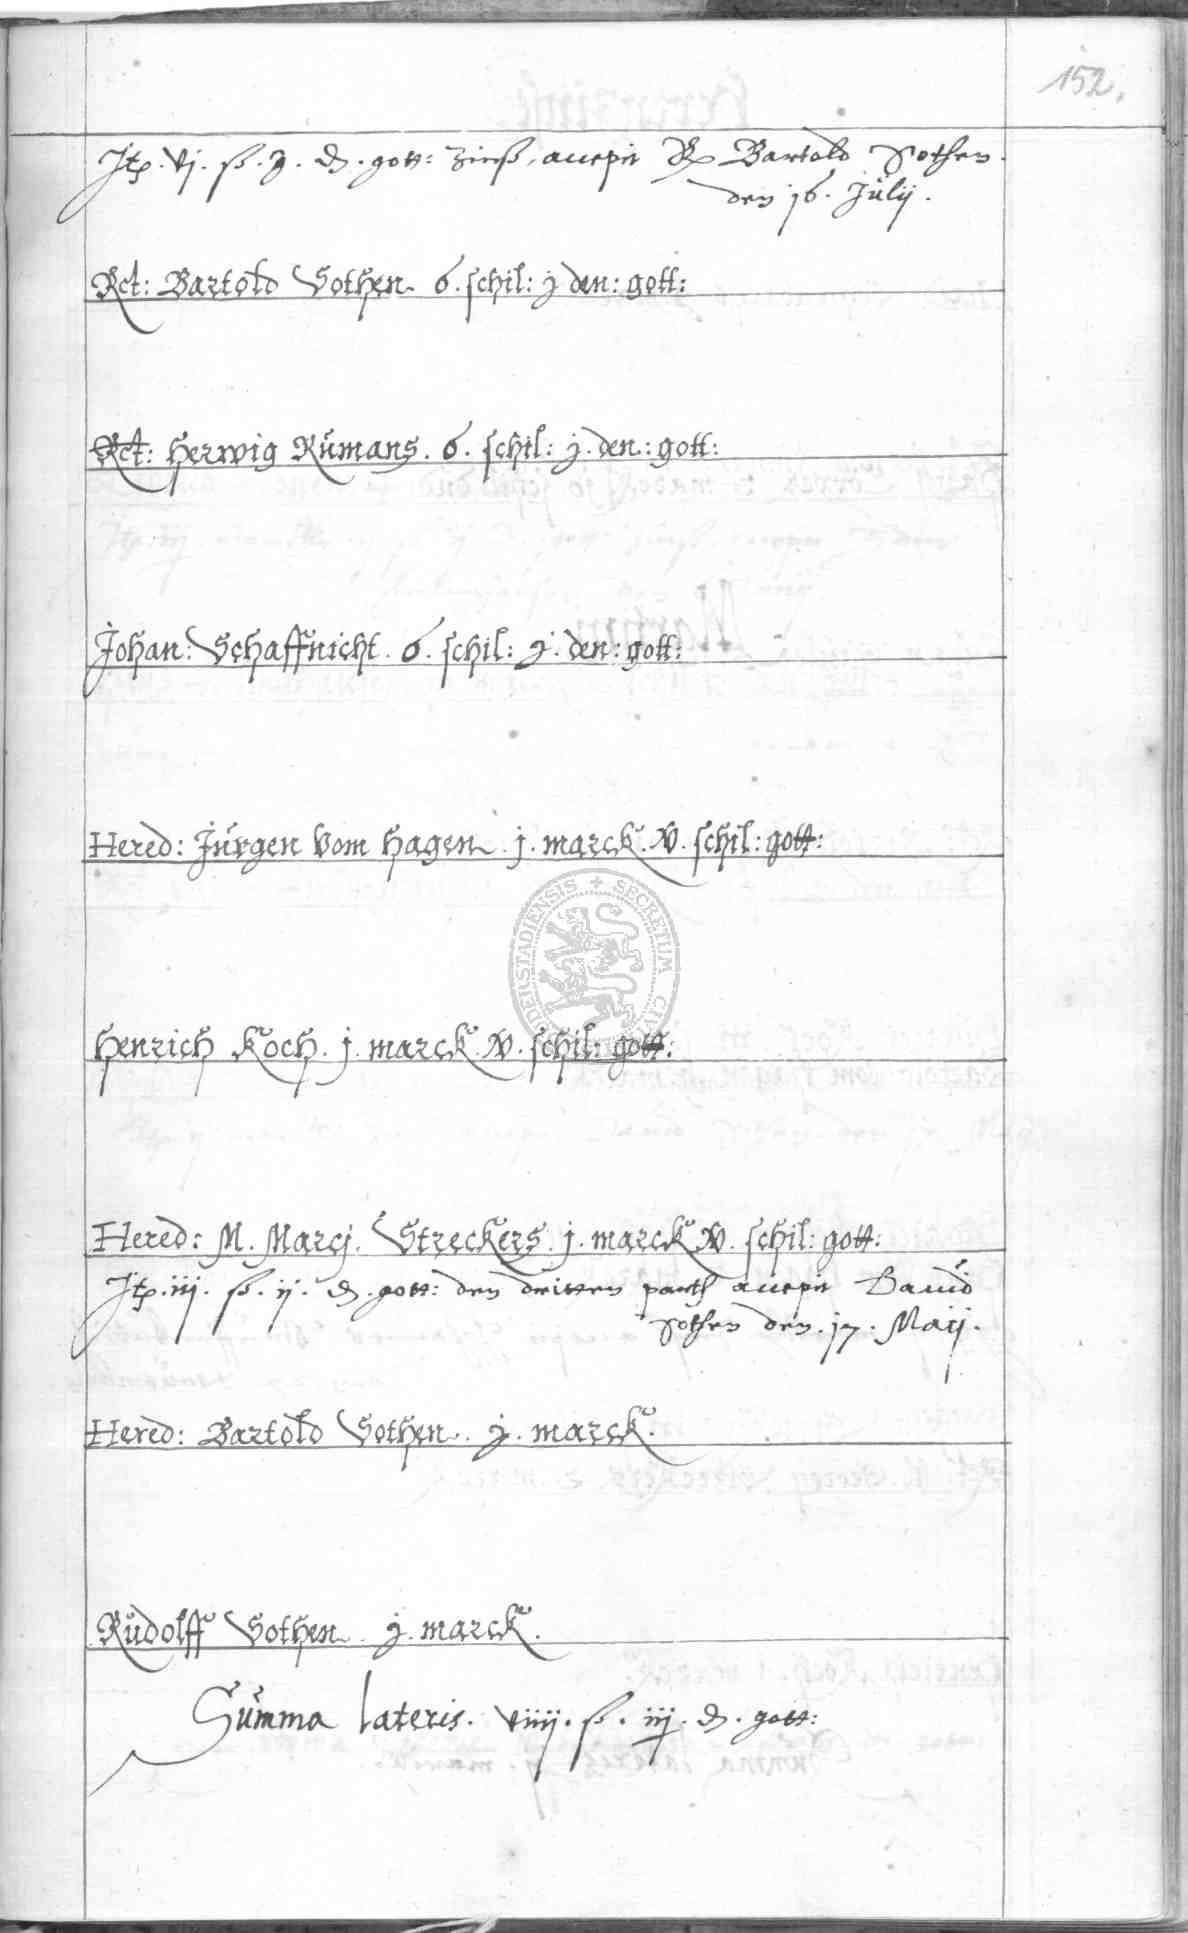 152.
Jtp. vj. ß. j. ₰. gott: Zinß, accepit Rp Bartold Sothen.
den 16. Julij.
Rct: Bartold Sothen. 6. schil: j den: gott:
Rct: Herwig Rumans. 6. schil: j. den: gott:
Johan: Schaffnicht. 6. schil: j. den: gott:
Hered: Jurgen Vom Hagen. j. marck. XV. schil: gott:
Henrich Koch. j. marck. XV. schil: gott:
SECRETUM
Hered: M. Marcj. Streckers. j. marck XV. schil: gott:
Jtp. iij. ß. ij. ₰. gott: den dritten parth accepit Dauid
Sothen den. 17. Maij.
Hered: Bartold Sothen. j. marck.
Rudolff Sothen j. marck.
Summa lateris. viiij. ß. iij. ₰. gott: